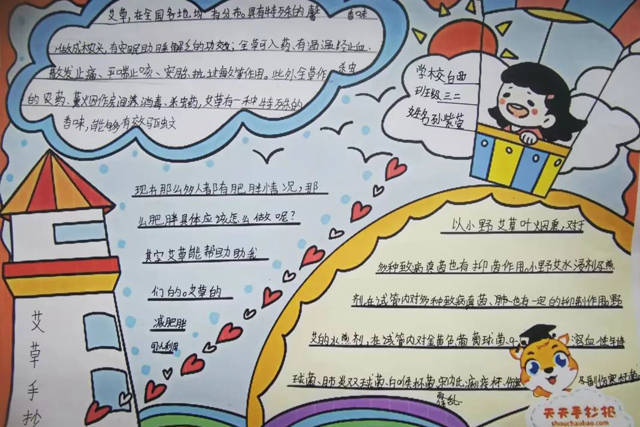 艾草,在全国多地域有分布。具有特殊的馨香味
做成枕头,有安眠助睡解乏的功效;全草可入药,有温湿经止血
散发止痛、平喘止咳、安胎、抗过敏等作用。此外全草作杀虫
的农药、薰烟作房间消毒、杀虫药,艾草有一种特殊的
香味,能够有效驱蚊
学校白西
班级三二
姓名孙紫萱
现在那么多人都有肥胖情况,那
么肥胖具体应该怎么做呢?
其实艾草能帮助我
们的。艾草的
减肥
以小野艾草叶烟熏,对于
多种致病真菌也有抑菌作用。小野艾水浸剂及煎
剂,在试管内对多种致病真菌、也有一定的抑制作用。野
艾的水煎剂,在试管内对金黄色葡萄球菌、溶血链球
球菌、肺炎双球菌、白喉杆菌
艾草手抄
天天手抄报
shouchaobao.com